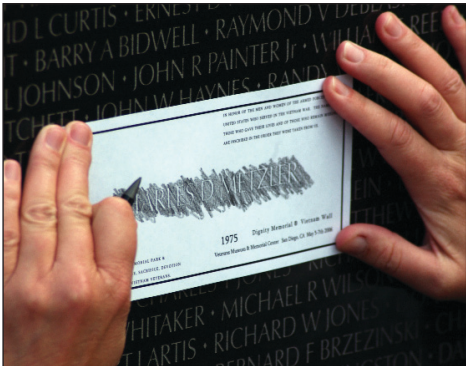 ID L CURTIS · ERNEST D
· BARRY A BIDWELL · RAYMOND V DEBL
L JOHNSON · JOHN R PAINTER Jr · WILLIA
· JOHN W HAYNES · RAND
IN HONOR OF THE MEN AND WOMEN OF THE ARMED
UNITED STATES WHO SERVED IN THE VIETNAM WAR. THE
THOSE WHO GAVE THEIR LIVES AND OF THOSE WHO REMAIN MISSING
ARE INSCRIBED IN THE ORDER THEY WERE TAKEN FROM US
CHARLES D METZLER
1975 Dignity Memorial ® Vietnam Wall
Veterans Museum & Memorial Center San Diego, CA May
PARK &
SACRIFICE, DEVOTION
VIETNAM VETERANS.
CHARLES J JONES ·
WHITAKER · MICHAEL R WILSO
T LARTIS · RICHARD W JONES
BERNARD F BRZEZINSKI · CH